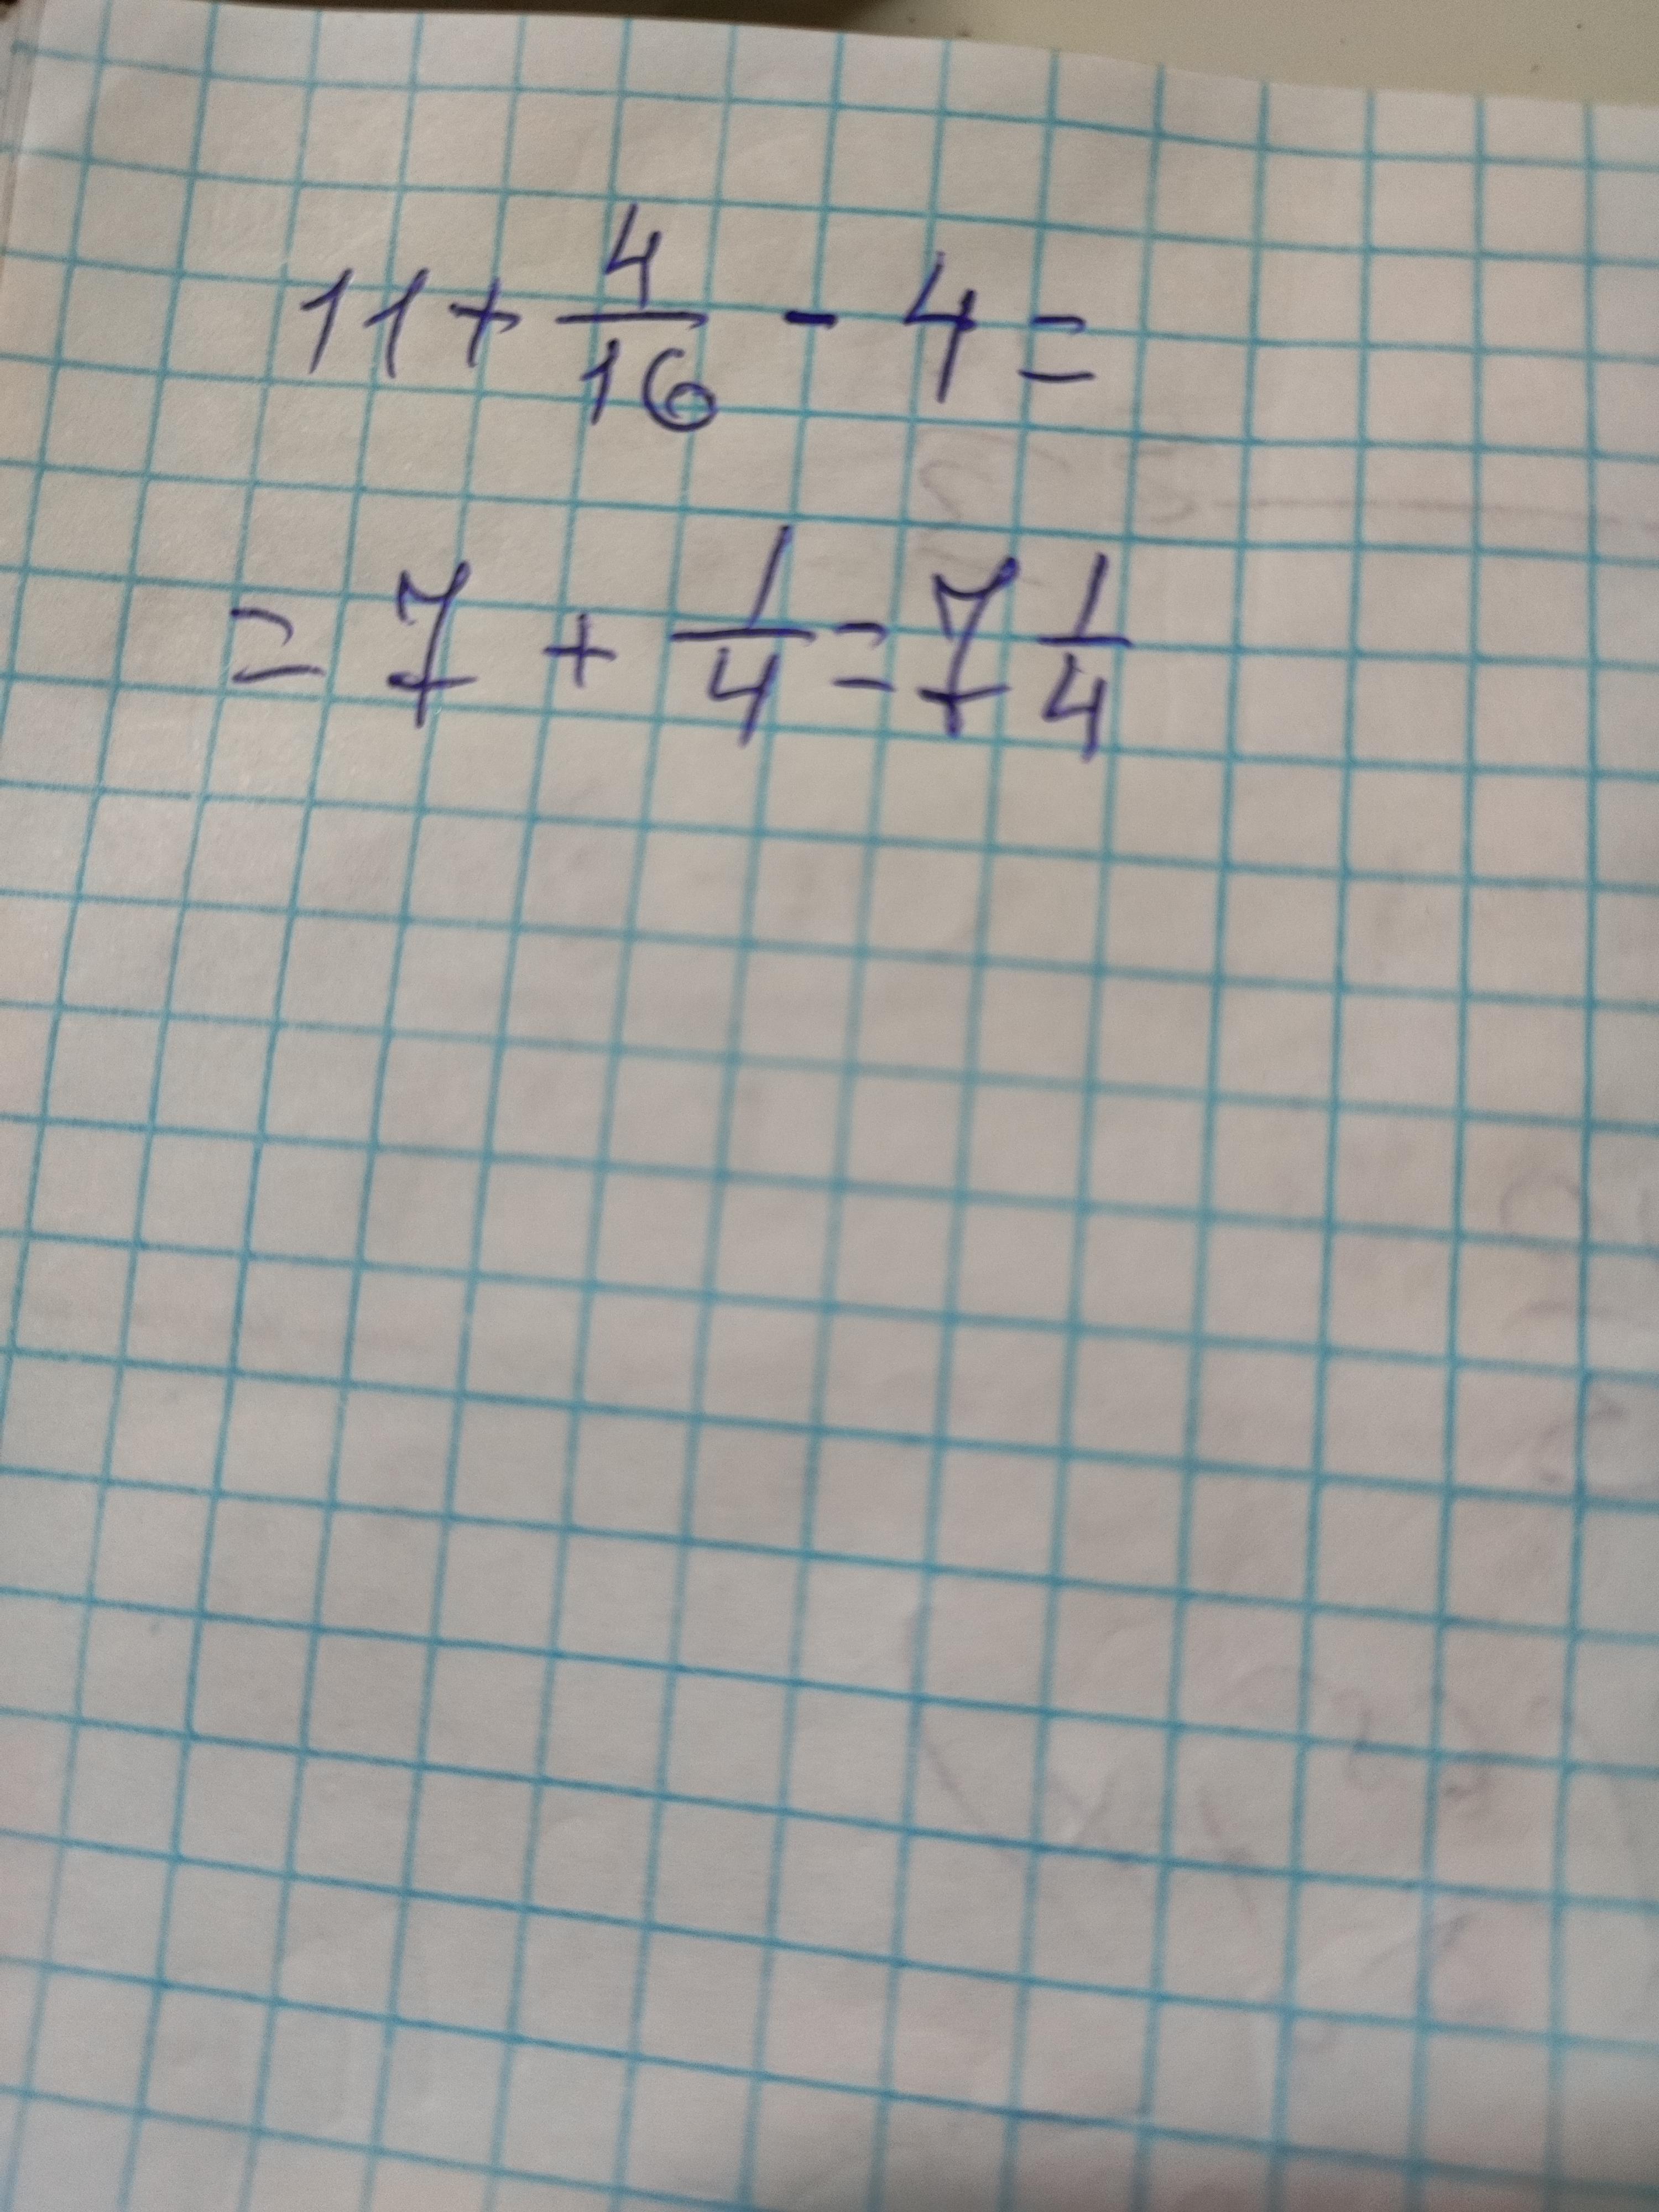 11 + 4/16 - 4 =
= 7 + 1/4 = 7 1/4